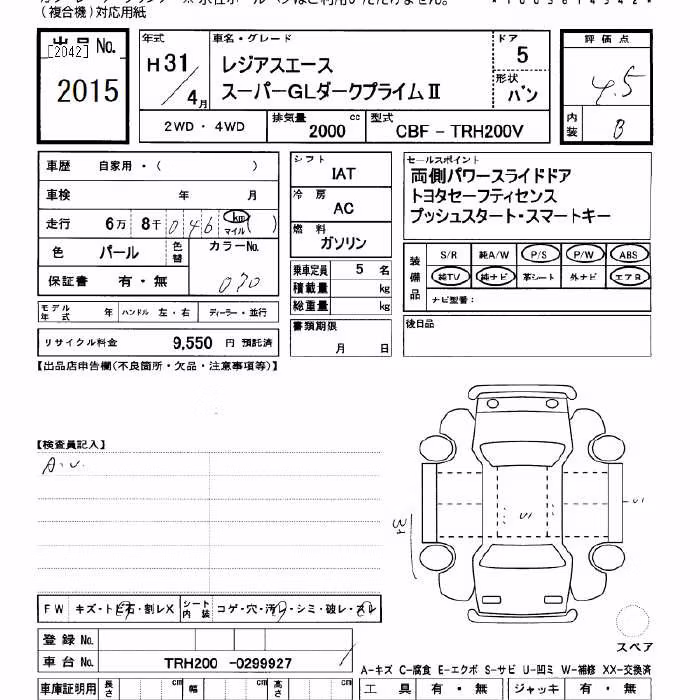 (複合機)対応用紙
出品 No. [2042]
2015
年式 H31/4月
車名・グレード
レジアスエース
スーパーGLダークプライムⅡ
ドア 5
形状 バン
評価点 4.5
内装 B
2WD・4WD
排気量 2000 cc
型式 CBF - TRH200V
車歴 自家用・( )
車検 年 月
走行 6万 8千 046 km マイル ( )
色 パール 色替 カラーNo. 070
保証書 有・無
モデル年式 年 ハンドル 左・右 ディーラー・並行
リサイクル料金 9,550 円 預託済
シフト IAT
冷房 AC
燃料 ガソリン
乗車定員 5 名
積載量 kg
総重量 kg
書類期限 月 日
セールスポイント
両側パワースライドドア
トヨタセーフティセンス
プッシュスタート・スマートキー
装備品 S/R 純A/W P/S P/W ABS
純TV 純ナビ 革シート 外ナビ エアB
ナビ型番:
後日品
【出品店申告欄(不良箇所・欠品・注意事項等)】
【検査員記入】
A.U.
U1
U1
スペア
FW キズ・ト石・割レX シート内装 コゲ・穴・汚レ・シミ・破レ・スレ
登録 No.
車台 No. TRH200 -0299927
A-キズ C-腐食 E-エクボ S-サビ U-凹ミ W-補修 XX-交換済
車庫証明用 長さ cm 幅 cm 高さ cm
工具 有・無 ジャッキ 有・無